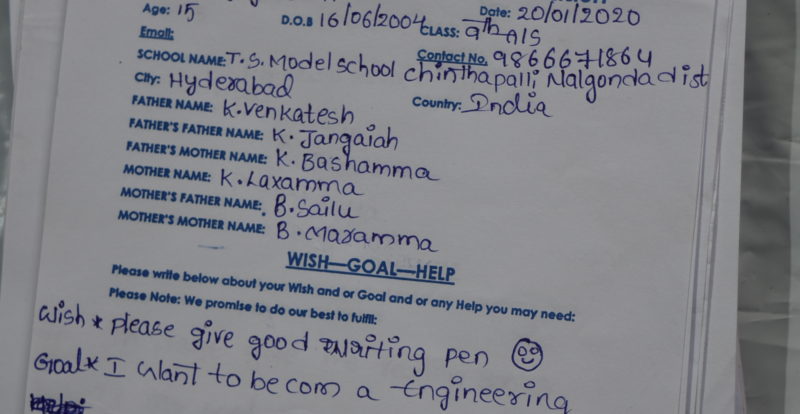 Age: 15 Date: 20/01/2020
D.O.B 16/06/2004 CLASS: 9th A/S
Email:
Contact No. 9866671864
SCHOOL NAME: T.S. Model school chinthapalli Nalgonda dist
City: Hyderabad Country: India
FATHER NAME: K. Venkatesh
FATHER'S FATHER NAME: K. Jangaiah
FATHER'S MOTHER NAME: K. Bashamma
MOTHER NAME: K. Laxamma
MOTHER'S FATHER NAME: B. Sailu
MOTHER'S MOTHER NAME: B. Maramma
WISH—GOAL—HELP
Please write below about your Wish and or Goal and or any Help you may need:
Please Note: We promise to do our best to fulfil:
Wish * please give good writing pen
Goal * I want to be com a Engineering